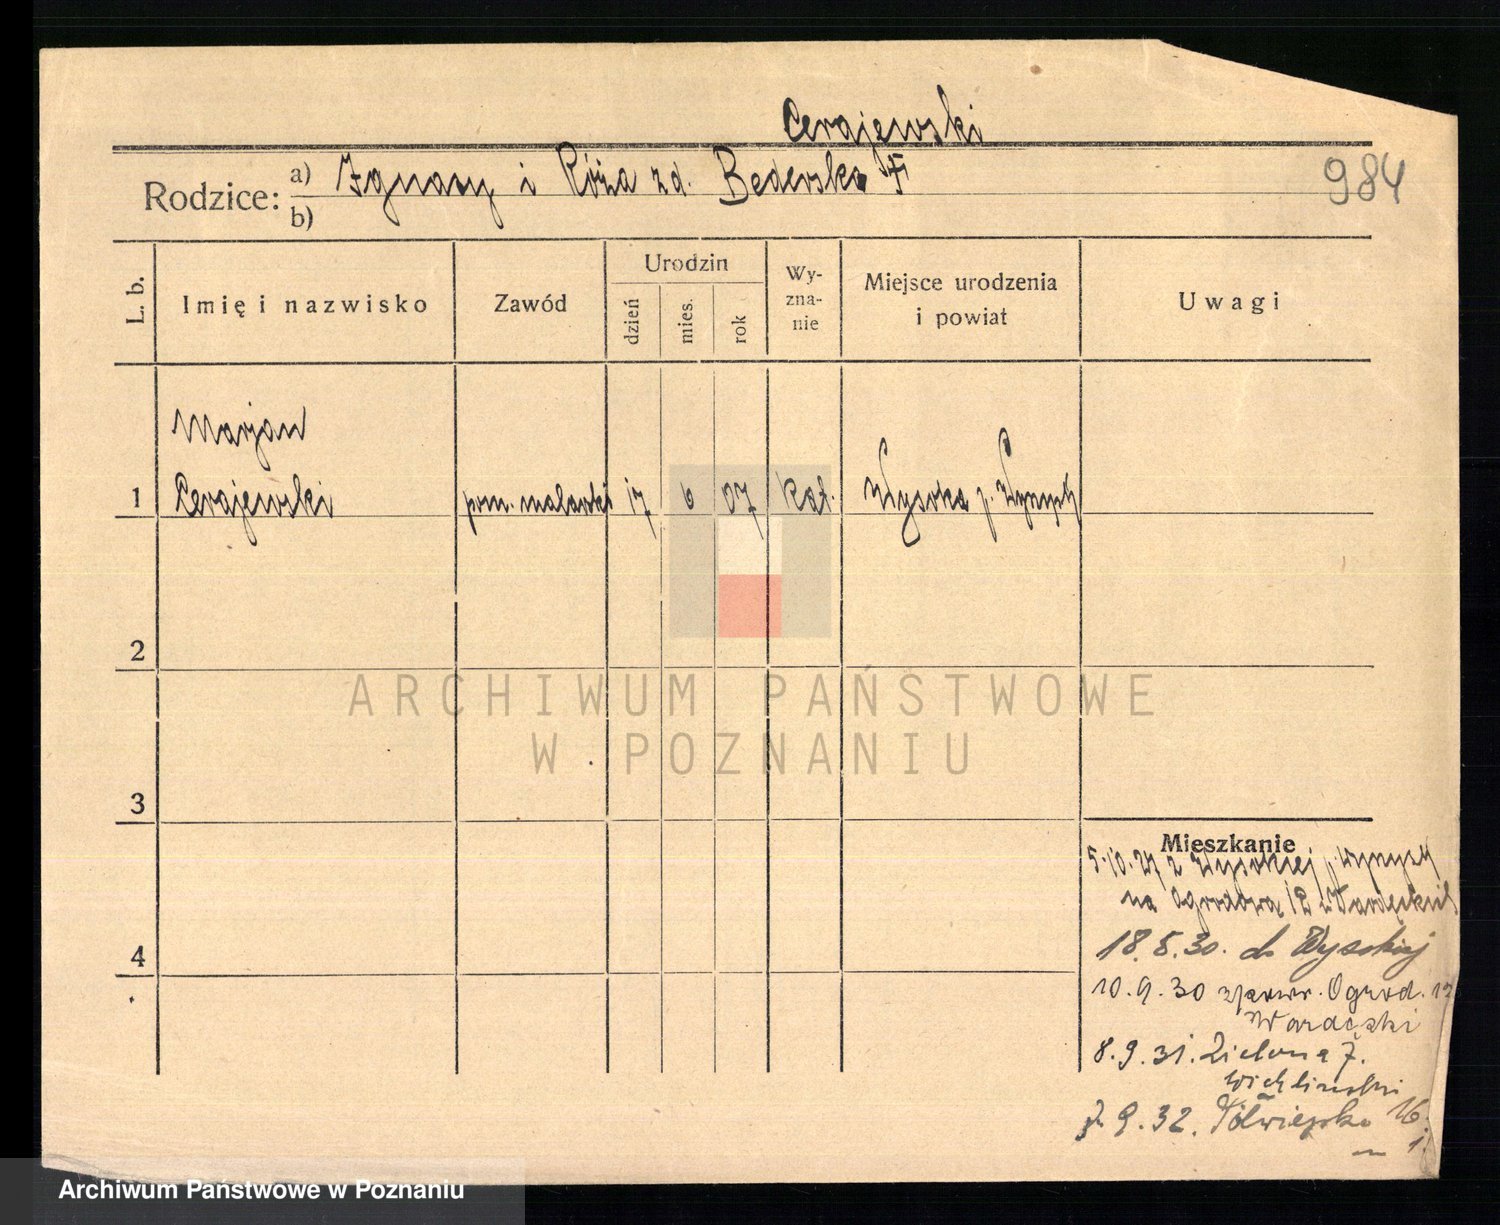 Cerajewski
Rodzice: a) Ignacy i Róża zd. Bederska
b)
984
L. b.
Imię i nazwisko
Zawód
Urodzin
dzień
mies.
rok
Wy-
zna-
nie
Miejsce urodzenia
i powiat
Uwagi
Marjan
1 Cerajewski pom. malarski 17 6 07 kat. Wysoka p. Wyrzysk
2
3
4
Mieszkanie
5.10.27 z Wysokiej p. Wyrzysk
na Ogrodową 12
18.8.30. do Wysokiej
10.9.30 Ogrod. 12
8.9.31. Zielona 7.
9.32. Półwiejska 16
ARCHIWUM PAŃSTWOWE
W POZNANIU
Archiwum Państwowe w Poznaniu